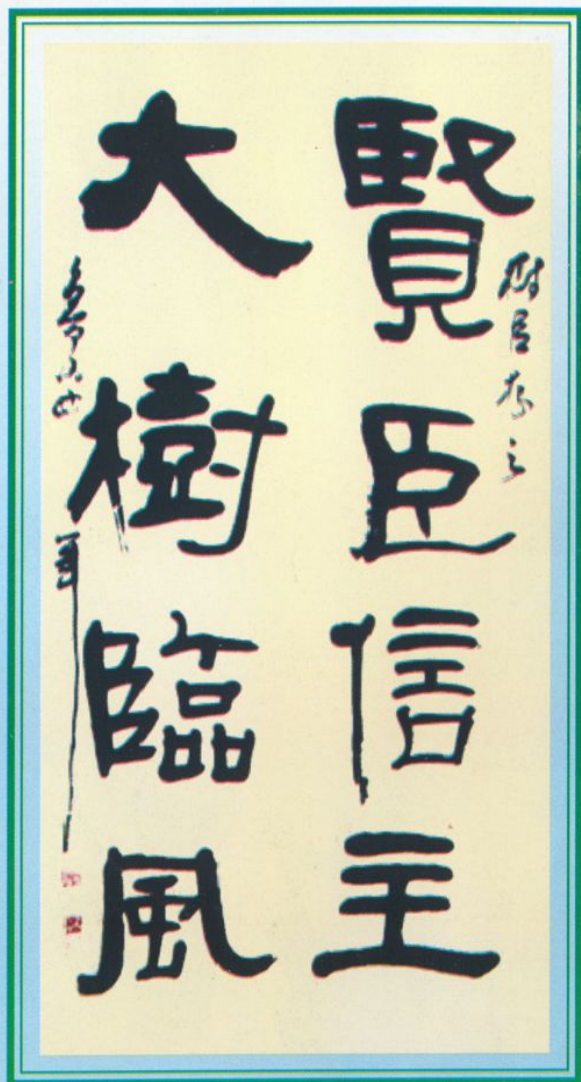 賢臣信主
大樹臨風